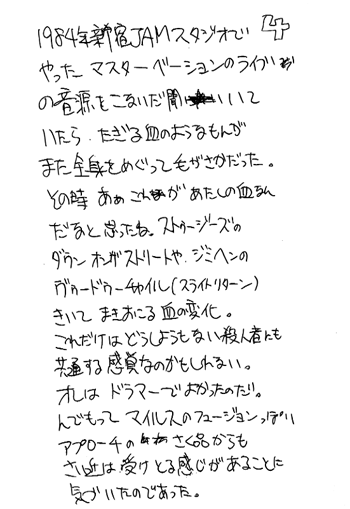 1984年新宿JAMスタジオで 4
やった マスターベーションのライブ
の音源をこないだ聞いて
いたら、たぎる血のようなもんが
また全身をめぐって毛がさかだった。
その時 あぁ これが あたしの血なん
だなと思ったね。ストゥージーズの
ダウン オンザストリートや、ジミヘンの
ヴードゥーチャイル(スライトリターン)
きいて まきおこる 血の変化。
これだけはどうしようもない殺人者にも
共通する感覚なのかもしれない。
オレは ドラマーでよかったのだ!
んでもって マイルスのフュージョンっぽい
アプローチの さく品からも
さい近は受けとる感じがあることに
気づいたのであった。